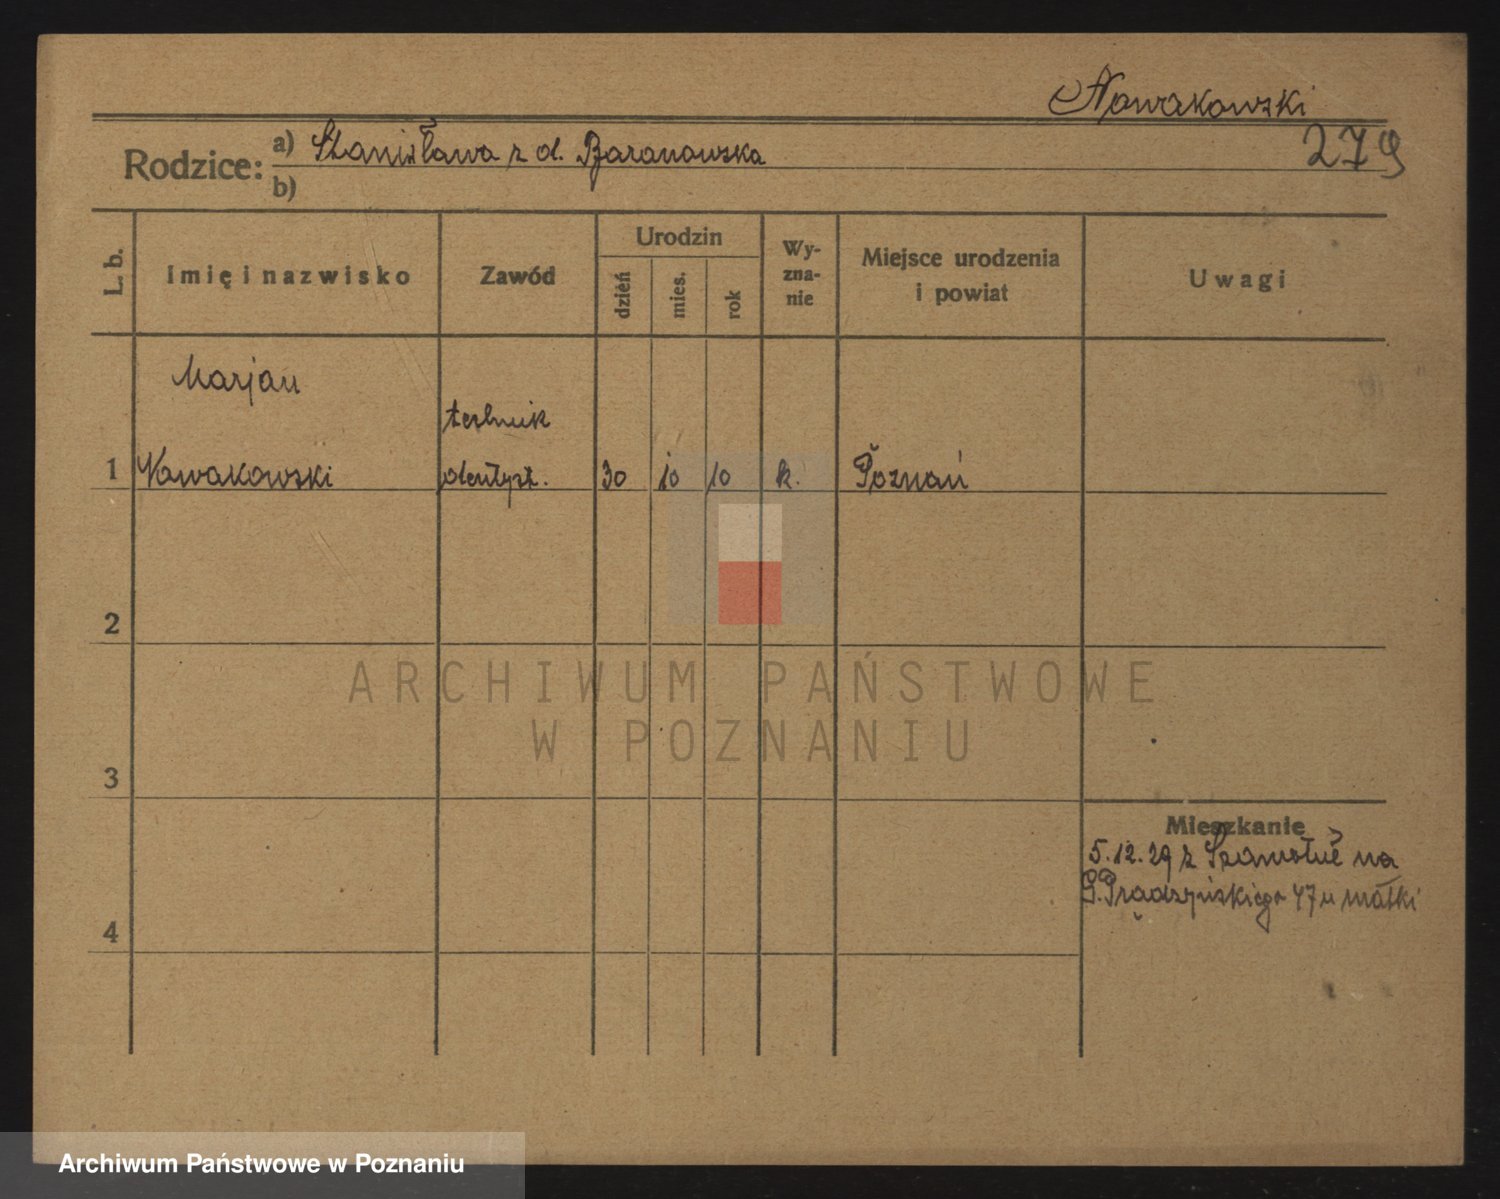 Nowakowski
279
Rodzice: a) Stanisława z d. Baranowska
b)
L. b. Imię i nazwisko Zawód Urodzin dzień mies. rok Wy-zna-nie Miejsce urodzenia i powiat Uwagi
Marjan
technik
1 Nowakowski dentyst. 30 10 10 k. Poznań
2
3
Mieszkanie
5.12.29 z Szamotuł na
G. Prądzyńskiego 47 u matki
4
ARCHIWUM PAŃSTWOWE
W POZNANIU
Archiwum Państwowe w Poznaniu